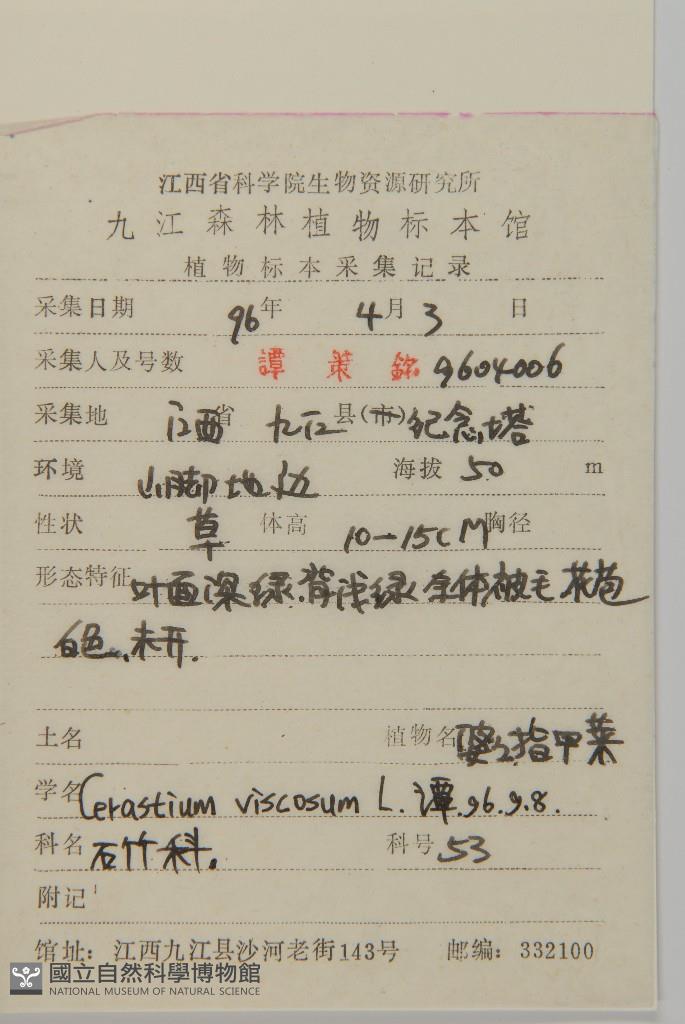 江西省科学院生物资源研究所
九江森林植物标本馆
植物标本采集记录
采集日期 96年 4月 3 日
采集人及号数 譚策銘 9604006
采集地 江西省 九江县(市)纪念塔
环境 山脚地边 海拔 50 m
性状 草 体高 10—15CM 胸径
形态特征 叶面深绿.背浅绿.全体被毛.花苞
白色.未开.
土名 植物名 婆婆指甲菜
学名 Cerastium viscosum L. 谭.96.9.8.
科名 石竹科. 科号 53
附记
馆址：江西九江县沙河老街143号 邮编：332100
國立自然科學博物館
NATIONAL MUSEUM OF NATURAL SCIENCE